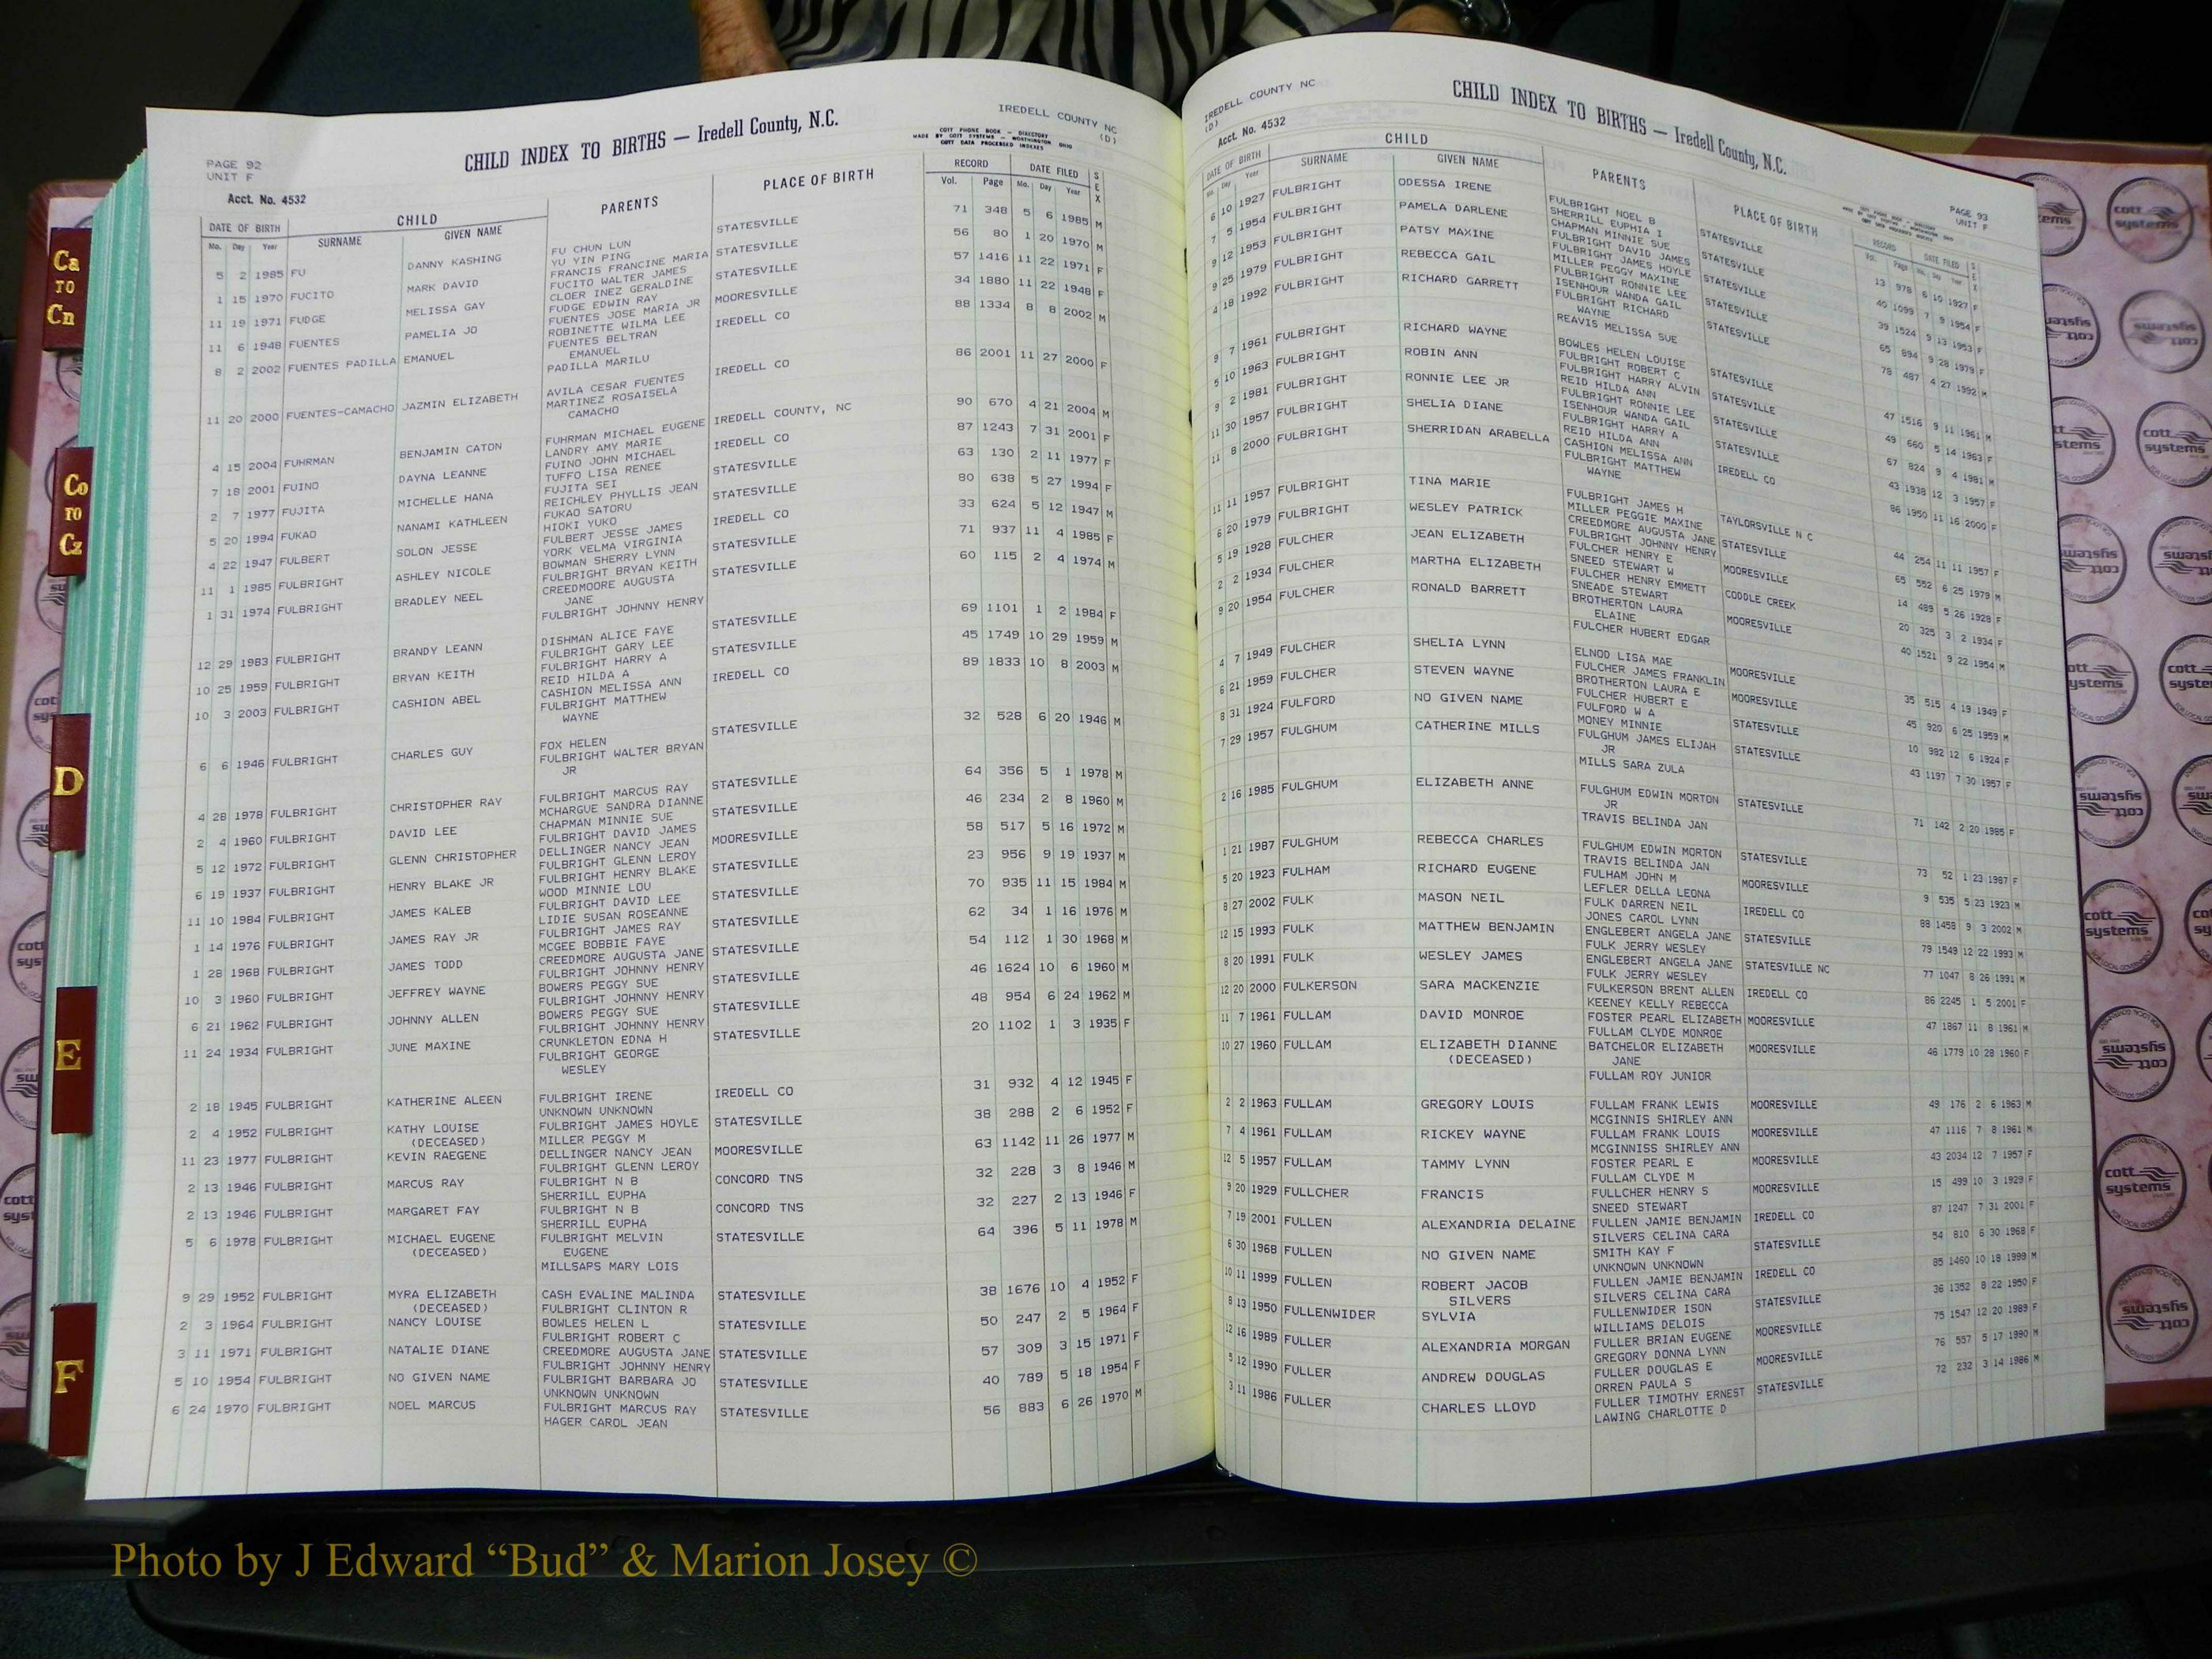 IREDELL COUNTY NC
(D)
CHILD INDEX TO BIRTHS — Iredell County, N.C.
COTT PHONE BOOK — DIRECTORY
MADE BY COTT SYSTEMS — WORTHINGTON OHIO
COTT DATA PROCESSED INDEXES
PAGE 92
UNIT F
Acct. No. 4532
DATE OF BIRTH CHILD PARENTS PLACE OF BIRTH RECORD DATE FILED SEX
Mo. Day Year SURNAME GIVEN NAME Vol. Page Mo. Day Year
5 2 1985 FU DANNY KASHING FU CHUN LUN STATESVILLE 71 348 5 6 1985 M
YU YIN PING
1 15 1970 FUCITO MARK DAVID FRANCIS FRANCINE MARIA STATESVILLE 56 80 1 20 1970 M
FUCITO WALTER JAMES
11 19 1971 FUDGE MELISSA GAY CLOER INEZ GERALDINE STATESVILLE 57 1416 11 22 1971 F
FUDGE EDWIN RAY
11 6 1948 FUENTES PAMELIA JO FUENTES JOSE MARIA JR MOORESVILLE 34 1880 11 22 1948 F
ROBINETTE WILMA LEE
8 2 2002 FUENTES PADILLA EMANUEL FUENTES BELTRAN IREDELL CO 88 1334 8 8 2002 M
EMANUEL
PADILLA MARILU
11 20 2000 FUENTES-CAMACHO JAZMIN ELIZABETH AVILA CESAR FUENTES IREDELL CO 86 2001 11 27 2000 F
MARTINEZ ROSAISELA
CAMACHO
4 15 2004 FUHRMAN BENJAMIN CATON FUHRMAN MICHAEL EUGENE IREDELL COUNTY, NC 90 670 4 21 2004 M
LANDRY AMY MARIE
7 18 2001 FUINO DAYNA LEANNE FUINO JOHN MICHAEL IREDELL CO 87 1243 7 31 2001 F
TUFFO LISA RENEE
2 7 1977 FUJITA MICHELLE HANA FUJITA SEI STATESVILLE 63 130 2 11 1977 F
REICHLEY PHYLLIS JEAN
5 20 1994 FUKAO NANAMI KATHLEEN FUKAO SATORU STATESVILLE 80 638 5 27 1994 F
HIOKI YUKO
4 22 1947 FULBERT SOLON JESSE FULBERT JESSE JAMES IREDELL CO 33 624 5 12 1947 M
YORK VELMA VIRGINIA
11 1 1985 FULBRIGHT ASHLEY NICOLE BOWMAN SHERRY LYNN STATESVILLE 71 937 11 4 1985 F
FULBRIGHT BRYAN KEITH
1 31 1974 FULBRIGHT BRADLEY NEEL CREEDMOORE AUGUSTA STATESVILLE 60 115 2 4 1974 M
JANE
FULBRIGHT JOHNNY HENRY
12 29 1983 FULBRIGHT BRANDY LEANN DISHMAN ALICE FAYE STATESVILLE 69 1101 1 2 1984 F
FULBRIGHT GARY LEE
10 25 1959 FULBRIGHT BRYAN KEITH FULBRIGHT HARRY A STATESVILLE 45 1749 10 29 1959 M
REID HILDA A
10 3 2003 FULBRIGHT CASHION ABEL CASHION MELISSA ANN IREDELL CO 89 1833 10 8 2003 M
FULBRIGHT MATTHEW
WAYNE
6 6 1946 FULBRIGHT CHARLES GUY FOX HELEN STATESVILLE 32 528 6 20 1946 M
FULBRIGHT WALTER BRYAN
JR
4 28 1978 FULBRIGHT CHRISTOPHER RAY FULBRIGHT MARCUS RAY STATESVILLE 64 356 5 1 1978 M
MCHARGUE SANDRA DIANNE
2 4 1960 FULBRIGHT DAVID LEE CHAPMAN MINNIE SUE STATESVILLE 46 234 2 8 1960 M
FULBRIGHT DAVID JAMES
5 12 1972 FULBRIGHT GLENN CHRISTOPHER DELLINGER NANCY JEAN MOORESVILLE 58 517 5 16 1972 M
FULBRIGHT GLENN LEROY
6 19 1937 FULBRIGHT HENRY BLAKE JR FULBRIGHT HENRY BLAKE STATESVILLE 23 956 9 19 1937 M
WOOD MINNIE LOU
11 10 1984 FULBRIGHT JAMES KALEB FULBRIGHT DAVID LEE STATESVILLE 70 935 11 15 1984 M
LIDIE SUSAN ROSEANNE
1 14 1976 FULBRIGHT JAMES RAY JR FULBRIGHT JAMES RAY STATESVILLE 62 34 1 16 1976 M
MCGEE BOBBIE FAYE
1 28 1968 FULBRIGHT JAMES TODD CREEDMORE AUGUSTA JANE STATESVILLE 54 112 1 30 1968 M
FULBRIGHT JOHNNY HENRY
10 3 1960 FULBRIGHT JEFFREY WAYNE BOWERS PEGGY SUE STATESVILLE 46 1624 10 6 1960 M
FULBRIGHT JOHNNY HENRY
6 21 1962 FULBRIGHT JOHNNY ALLEN BOWERS PEGGY SUE STATESVILLE 48 954 6 24 1962 M
FULBRIGHT JOHNNY HENRY
11 24 1934 FULBRIGHT JUNE MAXINE CRUNKLETON EDNA H STATESVILLE 20 1102 1 3 1935 F
FULBRIGHT GEORGE
WESLEY
2 18 1945 FULBRIGHT KATHERINE ALEEN FULBRIGHT IRENE IREDELL CO 31 932 4 12 1945 F
UNKNOWN UNKNOWN
2 4 1952 FULBRIGHT KATHY LOUISE FULBRIGHT JAMES HOYLE STATESVILLE 38 288 2 6 1952 F
(DECEASED) MILLER PEGGY M
11 23 1977 FULBRIGHT KEVIN RAEGENE DELLINGER NANCY JEAN MOORESVILLE 63 1142 11 26 1977 M
FULBRIGHT GLENN LEROY
2 13 1946 FULBRIGHT MARCUS RAY FULBRIGHT N B CONCORD TNS 32 228 3 8 1946 M
SHERRILL EUPHA
2 13 1946 FULBRIGHT MARGARET FAY FULBRIGHT N B CONCORD TNS 32 227 2 13 1946 F
SHERRILL EUPHA
5 6 1978 FULBRIGHT MICHAEL EUGENE FULBRIGHT MELVIN STATESVILLE 64 396 5 11 1978 M
(DECEASED) EUGENE
MILLSAPS MARY LOIS
9 29 1952 FULBRIGHT MYRA ELIZABETH CASH EVALINE MALINDA STATESVILLE 38 1676 10 4 1952 F
(DECEASED) FULBRIGHT CLINTON R
2 3 1964 FULBRIGHT NANCY LOUISE BOWLES HELEN L STATESVILLE 50 247 2 5 1964 F
FULBRIGHT ROBERT C
3 11 1971 FULBRIGHT NATALIE DIANE CREEDMORE AUGUSTA JANE STATESVILLE 57 309 3 15 1971 F
FULBRIGHT JOHNNY HENRY
5 10 1954 FULBRIGHT NO GIVEN NAME FULBRIGHT BARBARA JO STATESVILLE 40 789 5 18 1954 F
UNKNOWN UNKNOWN
6 24 1970 FULBRIGHT NOEL MARCUS FULBRIGHT MARCUS RAY STATESVILLE 56 883 6 26 1970 M
HAGER CAROL JEAN
IREDELL COUNTY NC
(D)
CHILD INDEX TO BIRTHS — Iredell County, N.C.
Acct. No. 4532
PAGE 93
UNIT F
DATE OF BIRTH CHILD PARENTS PLACE OF BIRTH RECORD DATE FILED SEX
Mo. Day Year SURNAME GIVEN NAME Vol. Page Mo. Day Year
6 10 1927 FULBRIGHT ODESSA IRENE FULBRIGHT NOEL B STATESVILLE 13 978 6 10 1927 F
SHERRILL EUPHIA I
7 5 1954 FULBRIGHT PAMELA DARLENE CHAPMAN MINNIE SUE STATESVILLE 40 1099 7 9 1954 F
FULBRIGHT DAVID JAMES
9 12 1953 FULBRIGHT PATSY MAXINE FULBRIGHT JAMES HOYLE STATESVILLE 39 1524 9 13 1953 F
MILLER PEGGY MAXINE
9 25 1979 FULBRIGHT REBECCA GAIL FULBRIGHT RONNIE LEE STATESVILLE 65 894 9 28 1979 F
ISENHOUR WANDA GAIL
4 18 1992 FULBRIGHT RICHARD GARRETT FULBRIGHT RICHARD STATESVILLE 78 487 4 27 1992 M
WAYNE
REAVIS MELISSA SUE
9 7 1961 FULBRIGHT RICHARD WAYNE BOWLES HELEN LOUISE STATESVILLE 47 1516 9 11 1961 M
FULBRIGHT ROBERT C
5 10 1963 FULBRIGHT ROBIN ANN FULBRIGHT HARRY ALVIN STATESVILLE 49 660 5 14 1963 F
REID HILDA ANN
9 2 1981 FULBRIGHT RONNIE LEE JR FULBRIGHT RONNIE LEE STATESVILLE 67 824 9 4 1981 M
ISENHOUR WANDA GAIL
11 30 1957 FULBRIGHT SHELIA DIANE FULBRIGHT HARRY A STATESVILLE 43 1938 12 3 1957 F
REID HILDA ANN
11 8 2000 FULBRIGHT SHERRIDAN ARABELLA CASHION MELISSA ANN IREDELL CO 86 1950 11 16 2000 F
FULBRIGHT MATTHEW
WAYNE
11 11 1957 FULBRIGHT TINA MARIE FULBRIGHT JAMES H TAYLORSVILLE N C 44 254 11 11 1957 F
MILLER PEGGIE MAXINE
6 20 1979 FULBRIGHT WESLEY PATRICK CREEDMORE AUGUSTA JANE STATESVILLE 65 552 6 25 1979 M
FULBRIGHT JOHNNY HENRY
5 19 1928 FULCHER JEAN ELIZABETH FULCHER HENRY E MOORESVILLE 14 489 5 26 1928 F
SNEED STEWART W
2 2 1934 FULCHER MARTHA ELIZABETH FULCHER HENRY EMMETT CODDLE CREEK 20 325 3 2 1934 F
SNEADE STEWART
9 20 1954 FULCHER RONALD BARRETT BROTHERTON LAURA MOORESVILLE 40 1521 9 22 1954 M
ELAINE
FULCHER HUBERT EDGAR
4 7 1949 FULCHER SHELIA LYNN ELNOD LISA MAE MOORESVILLE 35 515 4 19 1949 F
FULCHER JAMES FRANKLIN
6 21 1959 FULCHER STEVEN WAYNE BROTHERTON LAURA E MOORESVILLE 45 920 6 25 1959 M
FULCHER HUBERT E
8 31 1924 FULFORD NO GIVEN NAME FULFORD W A STATESVILLE 10 982 12 6 1924 F
MONEY MINNIE
7 29 1957 FULGHUM CATHERINE MILLS FULGHUM JAMES ELIJAH STATESVILLE 43 1197 7 30 1957 F
JR
MILLS SARA ZULA
2 16 1985 FULGHUM ELIZABETH ANNE FULGHUM EDWIN MORTON STATESVILLE 71 142 2 20 1985 F
JR
TRAVIS BELINDA JAN
1 21 1987 FULGHUM REBECCA CHARLES FULGHUM EDWIN MORTON STATESVILLE 73 52 1 23 1987 F
TRAVIS BELINDA JAN
5 20 1923 FULHAM RICHARD EUGENE FULHAM JOHN M MOORESVILLE 9 535 5 23 1923 M
LEFLER DELLA LEONA
8 27 2002 FULK MASON NEIL FULK DARREN NEIL IREDELL CO 88 1458 9 3 2002 M
JONES CAROL LYNN
12 15 1993 FULK MATTHEW BENJAMIN ENGLEBERT ANGELA JANE STATESVILLE 79 1549 12 22 1993 M
FULK JERRY WESLEY
8 20 1991 FULK WESLEY JAMES ENGLEBERT ANGELA JANE STATESVILLE NC 77 1047 8 26 1991 M
FULK JERRY WESLEY
12 20 2000 FULKERSON SARA MACKENZIE FULKERSON BRENT ALLEN IREDELL CO 86 2245 1 5 2001 F
KEENEY KELLY REBECCA
11 7 1961 FULLAM DAVID MONROE FOSTER PEARL ELIZABETH MOORESVILLE 47 1867 11 8 1961 M
FULLAM CLYDE MONROE
10 27 1960 FULLAM ELIZABETH DIANNE BATCHELOR ELIZABETH MOORESVILLE 46 1779 10 28 1960 F
(DECEASED) JANE
FULLAM ROY JUNIOR
2 2 1963 FULLAM GREGORY LOUIS FULLAM FRANK LEWIS MOORESVILLE 49 176 2 6 1963 M
MCGINNIS SHIRLEY ANN
7 4 1961 FULLAM RICKEY WAYNE FULLAM FRANK LOUIS MOORESVILLE 47 1116 7 8 1961 M
MCGINNISS SHIRLEY ANN
12 5 1957 FULLAM TAMMY LYNN FOSTER PEARL E MOORESVILLE 43 2034 12 7 1957 F
FULLAM CLYDE M
9 20 1929 FULLCHER FRANCIS FULLCHER HENRY S MOORESVILLE 15 499 10 3 1929 F
SNEED STEWART
7 19 2001 FULLEN ALEXANDRIA DELAINE FULLEN JAMIE BENJAMIN IREDELL CO 87 1247 7 31 2001 F
SILVERS CELINA CARA
6 30 1968 FULLEN NO GIVEN NAME SMITH KAY F STATESVILLE 54 810 6 30 1968 F
UNKNOWN UNKNOWN
10 11 1999 FULLEN ROBERT JACOB FULLEN JAMIE BENJAMIN IREDELL CO 85 1460 10 18 1999 M
SILVERS SILVERS CELINA CARA
8 13 1950 FULLENWIDER SYLVIA FULLENWIDER ISON STATESVILLE 36 1352 8 22 1950 F
WILLIAMS DELOIS
12 16 1989 FULLER ALEXANDRIA MORGAN FULLER BRIAN EUGENE MOORESVILLE 75 1547 12 20 1989 F
GREGORY DONNA LYNN
5 12 1990 FULLER ANDREW DOUGLAS FULLER DOUGLAS E MOORESVILLE 76 557 5 17 1990 M
ORREN PAULA S
3 11 1986 FULLER CHARLES LLOYD FULLER TIMOTHY ERNEST STATESVILLE 72 232 3 14 1986 M
LAWING CHARLOTTE D
Ca
TO
Cn
Co
TO
Cz
D
E
F
cott
systems
Photo by J Edward “Bud” & Marion Josey ©